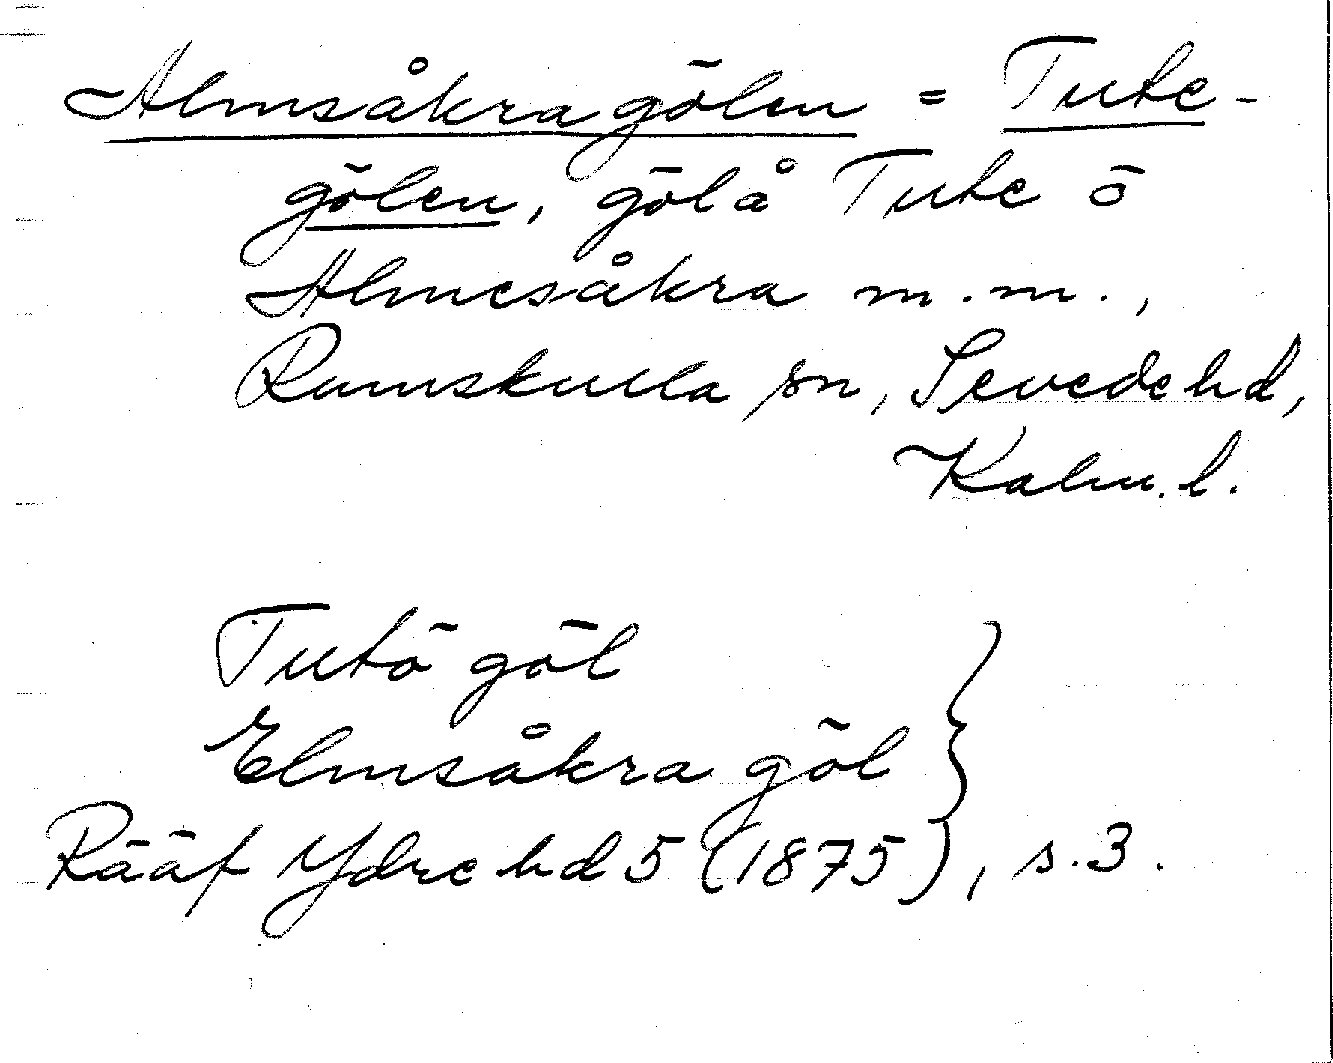 Almsåkragölen = Tute-
gölen, göl å Tute ö
Almesåkra m.m.,
Rumskulla sn, Sevede hd,
Kalm. l.
Tutö göl
Elmsåkra göl }
Rääf Ydre hd 5 (1875), s. 3.